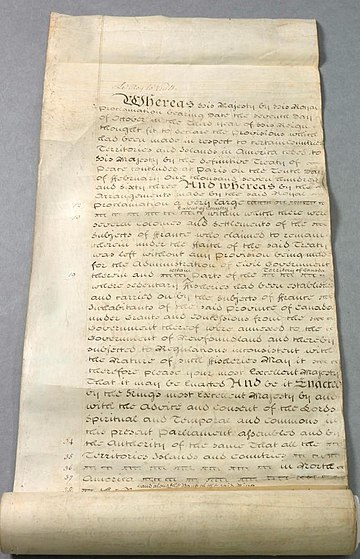 Whereas his Majesty by his Royal
Proclamation bearing Date the seventh Day
of October in the third Year of his Reign
thought fit to declare the Provisions which
had been made in respect to certain Countries
Territories and Islands in America ceded to
his Majesty by the definitive Treaty of
Peace concluded at Paris on the Tenth Day
of February One thousand seven hundred
and sixty three And whereas by the
Arrangements made by the said Royal
Proclamation a very large
within which there were
several Colonies and Settlements of the
Subjects of France who claimed to remain
therein under the Faith of the said Treaty
was left without any Provision being made
for the Administration of Civil Government
certain Territory of Canada
therein and Parts of the
where sedentary Fisheries had been established
and carried on by the Subjects of France
Inhabitants of the said Province of Canada
under Grants and Concessions from the
Government thereof were annexed to the
Government of Newfoundland and thereby
subjected to Regulations inconsistent with
the Nature of such Fisheries May it
therefore please your most Excellent Majesty
That it may be Enacted And be it Enacted
by the Kings most Excellent Majesty by and
with the Advice and Consent of the Lords
Spiritual and Temporal and Commons in
this present Parliament assembled and by
34 the Authority of the same That all the
35 Territories Islands and Countries
36 in North
37 America
38